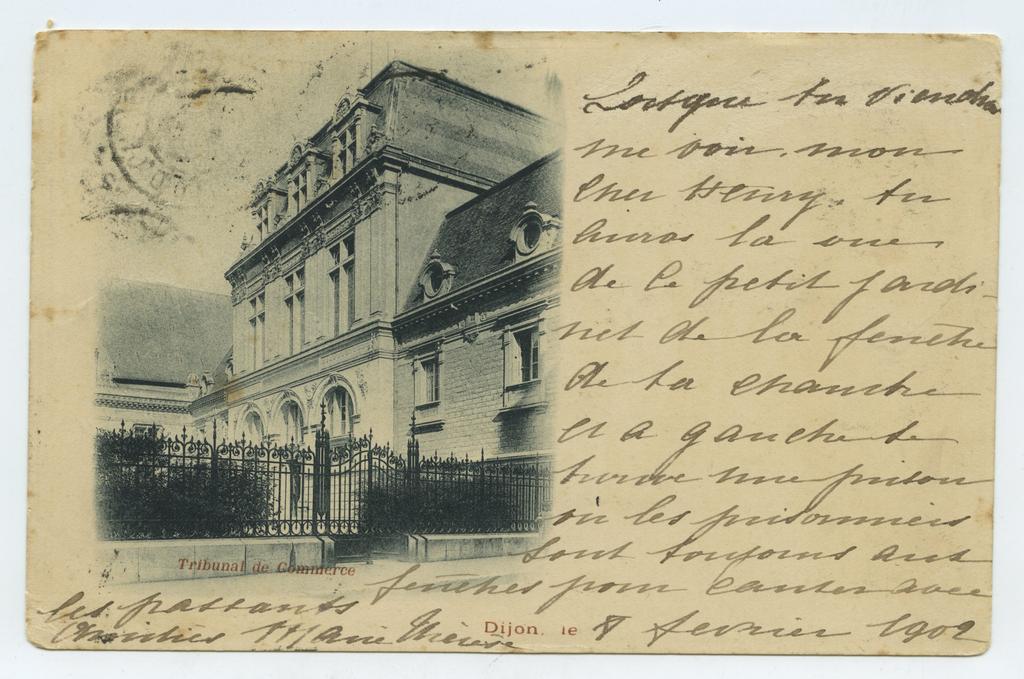 Lorsque tu viendras
me voir, mon
cher Henry, tu
auras la vue
de ce petit jardi-
net de la fenêtre
de ta chambre
et a gauche se
trouve une prison
où les prisonniers
sont toujours aux
fenêtres pour causer avec
les passants
Amitiés Marie Thérèse
Tribunal de Commerce
Dijon, le 8 fevrier 1902